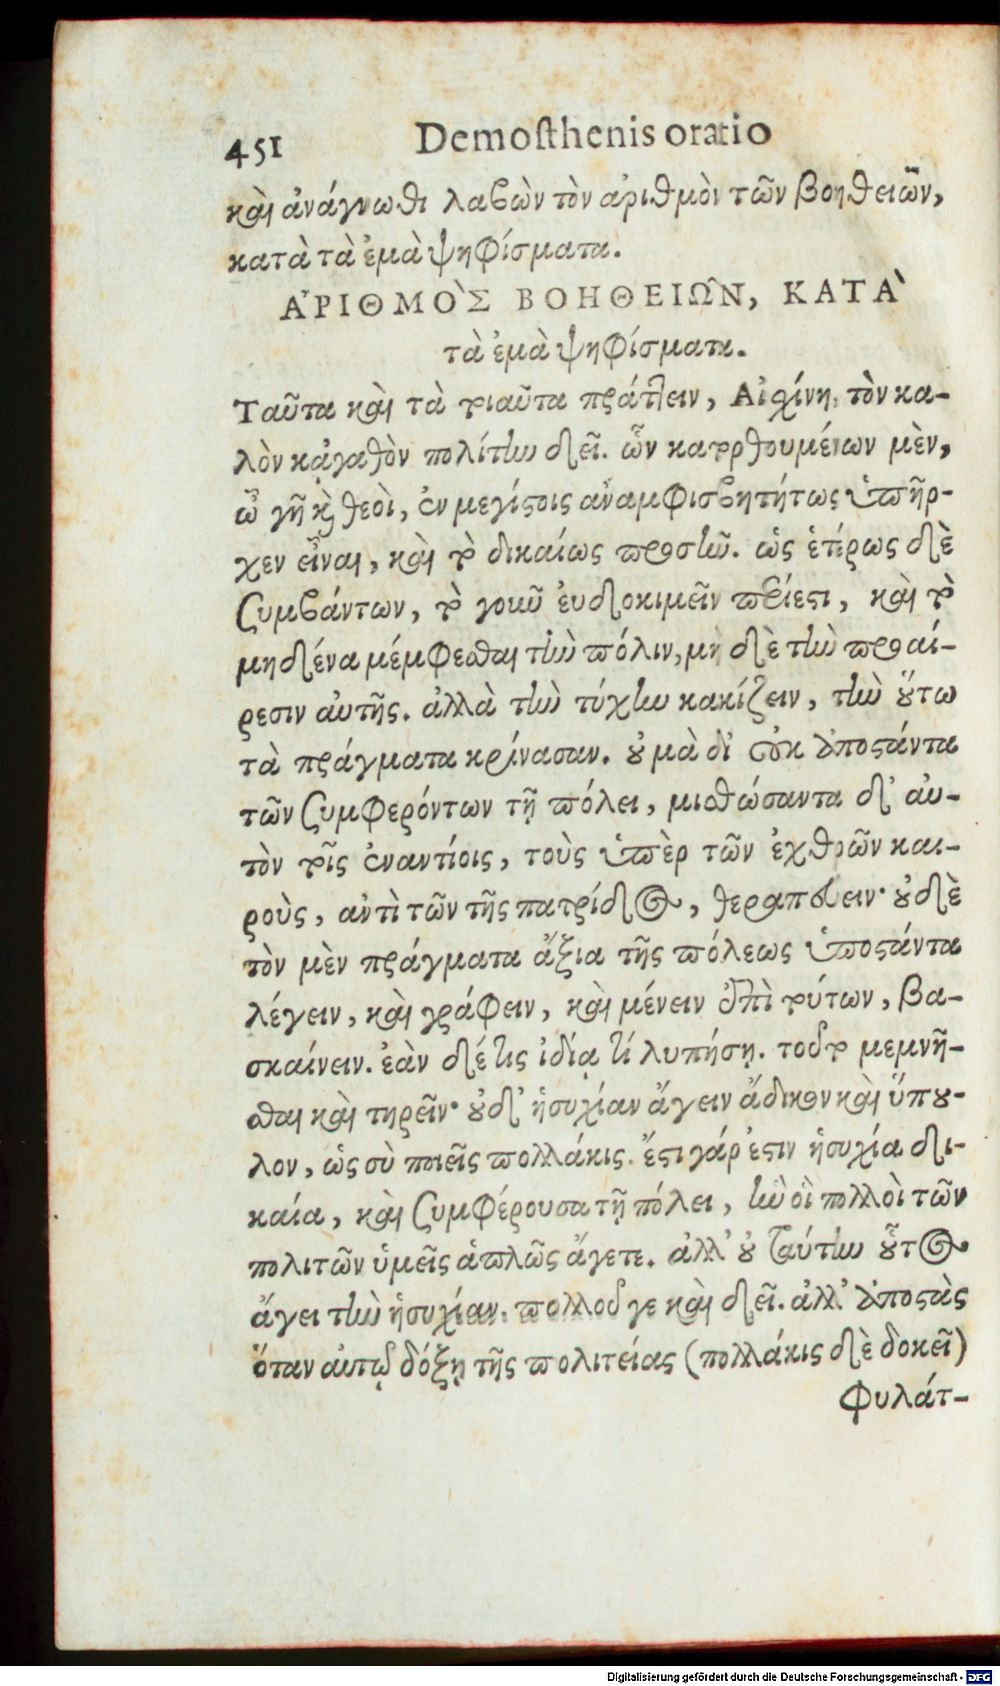 451 Demosthenis oratio
καὶ ἀνάγνωθι λαβὼν τὸν ἀριθμὸν τῶν βοηθειῶν,
κατὰ τὰ ἐμὰ ψηφίσματα.
ἈΡΙΘΜῸΣ ΒΟΗΘΕΙΩ͂Ν, ΚΑΤᾺ
τὰ ἐμὰ ψηφίσματα.
Ταῦτα καὶ τὰ τοιαῦτα πράττειν, Αἰσχίνη, τὸν κα-
λὸν κᾀγαθὸν πολίτην δεῖ. ὧν κατορθουμένων μὲν,
ὦ γῆ καὶ θεοὶ, ἐν μεγίστοις ἀναμφισβητήτως ὑπῆρ-
χεν εἶναι, καὶ τὸ δικαίως προσῆν. ὡς ἑτέρως δὲ
συμβάντων, τὸ γοῦν ἐυδοκιμεῖν περίεστι, καὶ τὸ
μηδένα μέμφεσθαι τὴν πόλιν, μὴ δὲ τὴν προαί-
ρεσιν ἀυτῆς. ἀλλὰ τὴν τύχην κακίζειν, τὴν οὕτω
τὰ πράγματα κρίνασαν. οὐ μὰ δί οὐκ ἀποστάντα
τῶν συμφερόντων τῇ πόλει, μισθώσαντα δ' ἀυ-
τὸν τοῖς ἐναντίοις, τοὺς ὑπὲρ τῶν ἐχθρῶν και-
ροὺς, ἀντὶ τῶν τῆς πατρίδος, θεραπεύειν· οὐδὲ
τὸν μὲν πράγματα ἄξια τῆς πόλεως ὑποστάντα
λέγειν, καὶ γράφειν, καὶ μένειν ἐπὶ τούτων, βα-
σκαίνειν. ἐὰν δέ τις ἰδίᾳ τί λυπήσῃ. τοῦτο μεμνῆ-
σθαι καὶ τηρεῖν· οὐδ' ἡσυχίαν ἄγειν ἄδικον καὶ ὕπου-
λον, ὡς σὺ ποιεῖς πολλάκις. ἔστι γάρ ἐστιν ἡσυχία δι-
καία, καὶ συμφέρουσα τῇ πόλει, ἣν οἱ πολλοὶ τῶν
πολιτῶν ὑμεῖς ἁπλῶς ἄγετε. ἀλλ' οὐ ταύτην οὗτος
ἄγει τὴν ἡσυχίαν. πολλοῦ γε καὶ δεῖ. ἀλλ' ἀποστὰς
ὅταν ἀυτῷ δόξῃ τῆς πολιτείας (πολλάκις δὲ δοκεῖ)
φυλάτ-
Digitalisierung gefördert durch die Deutsche Forschungsgemeinschaft - DFG